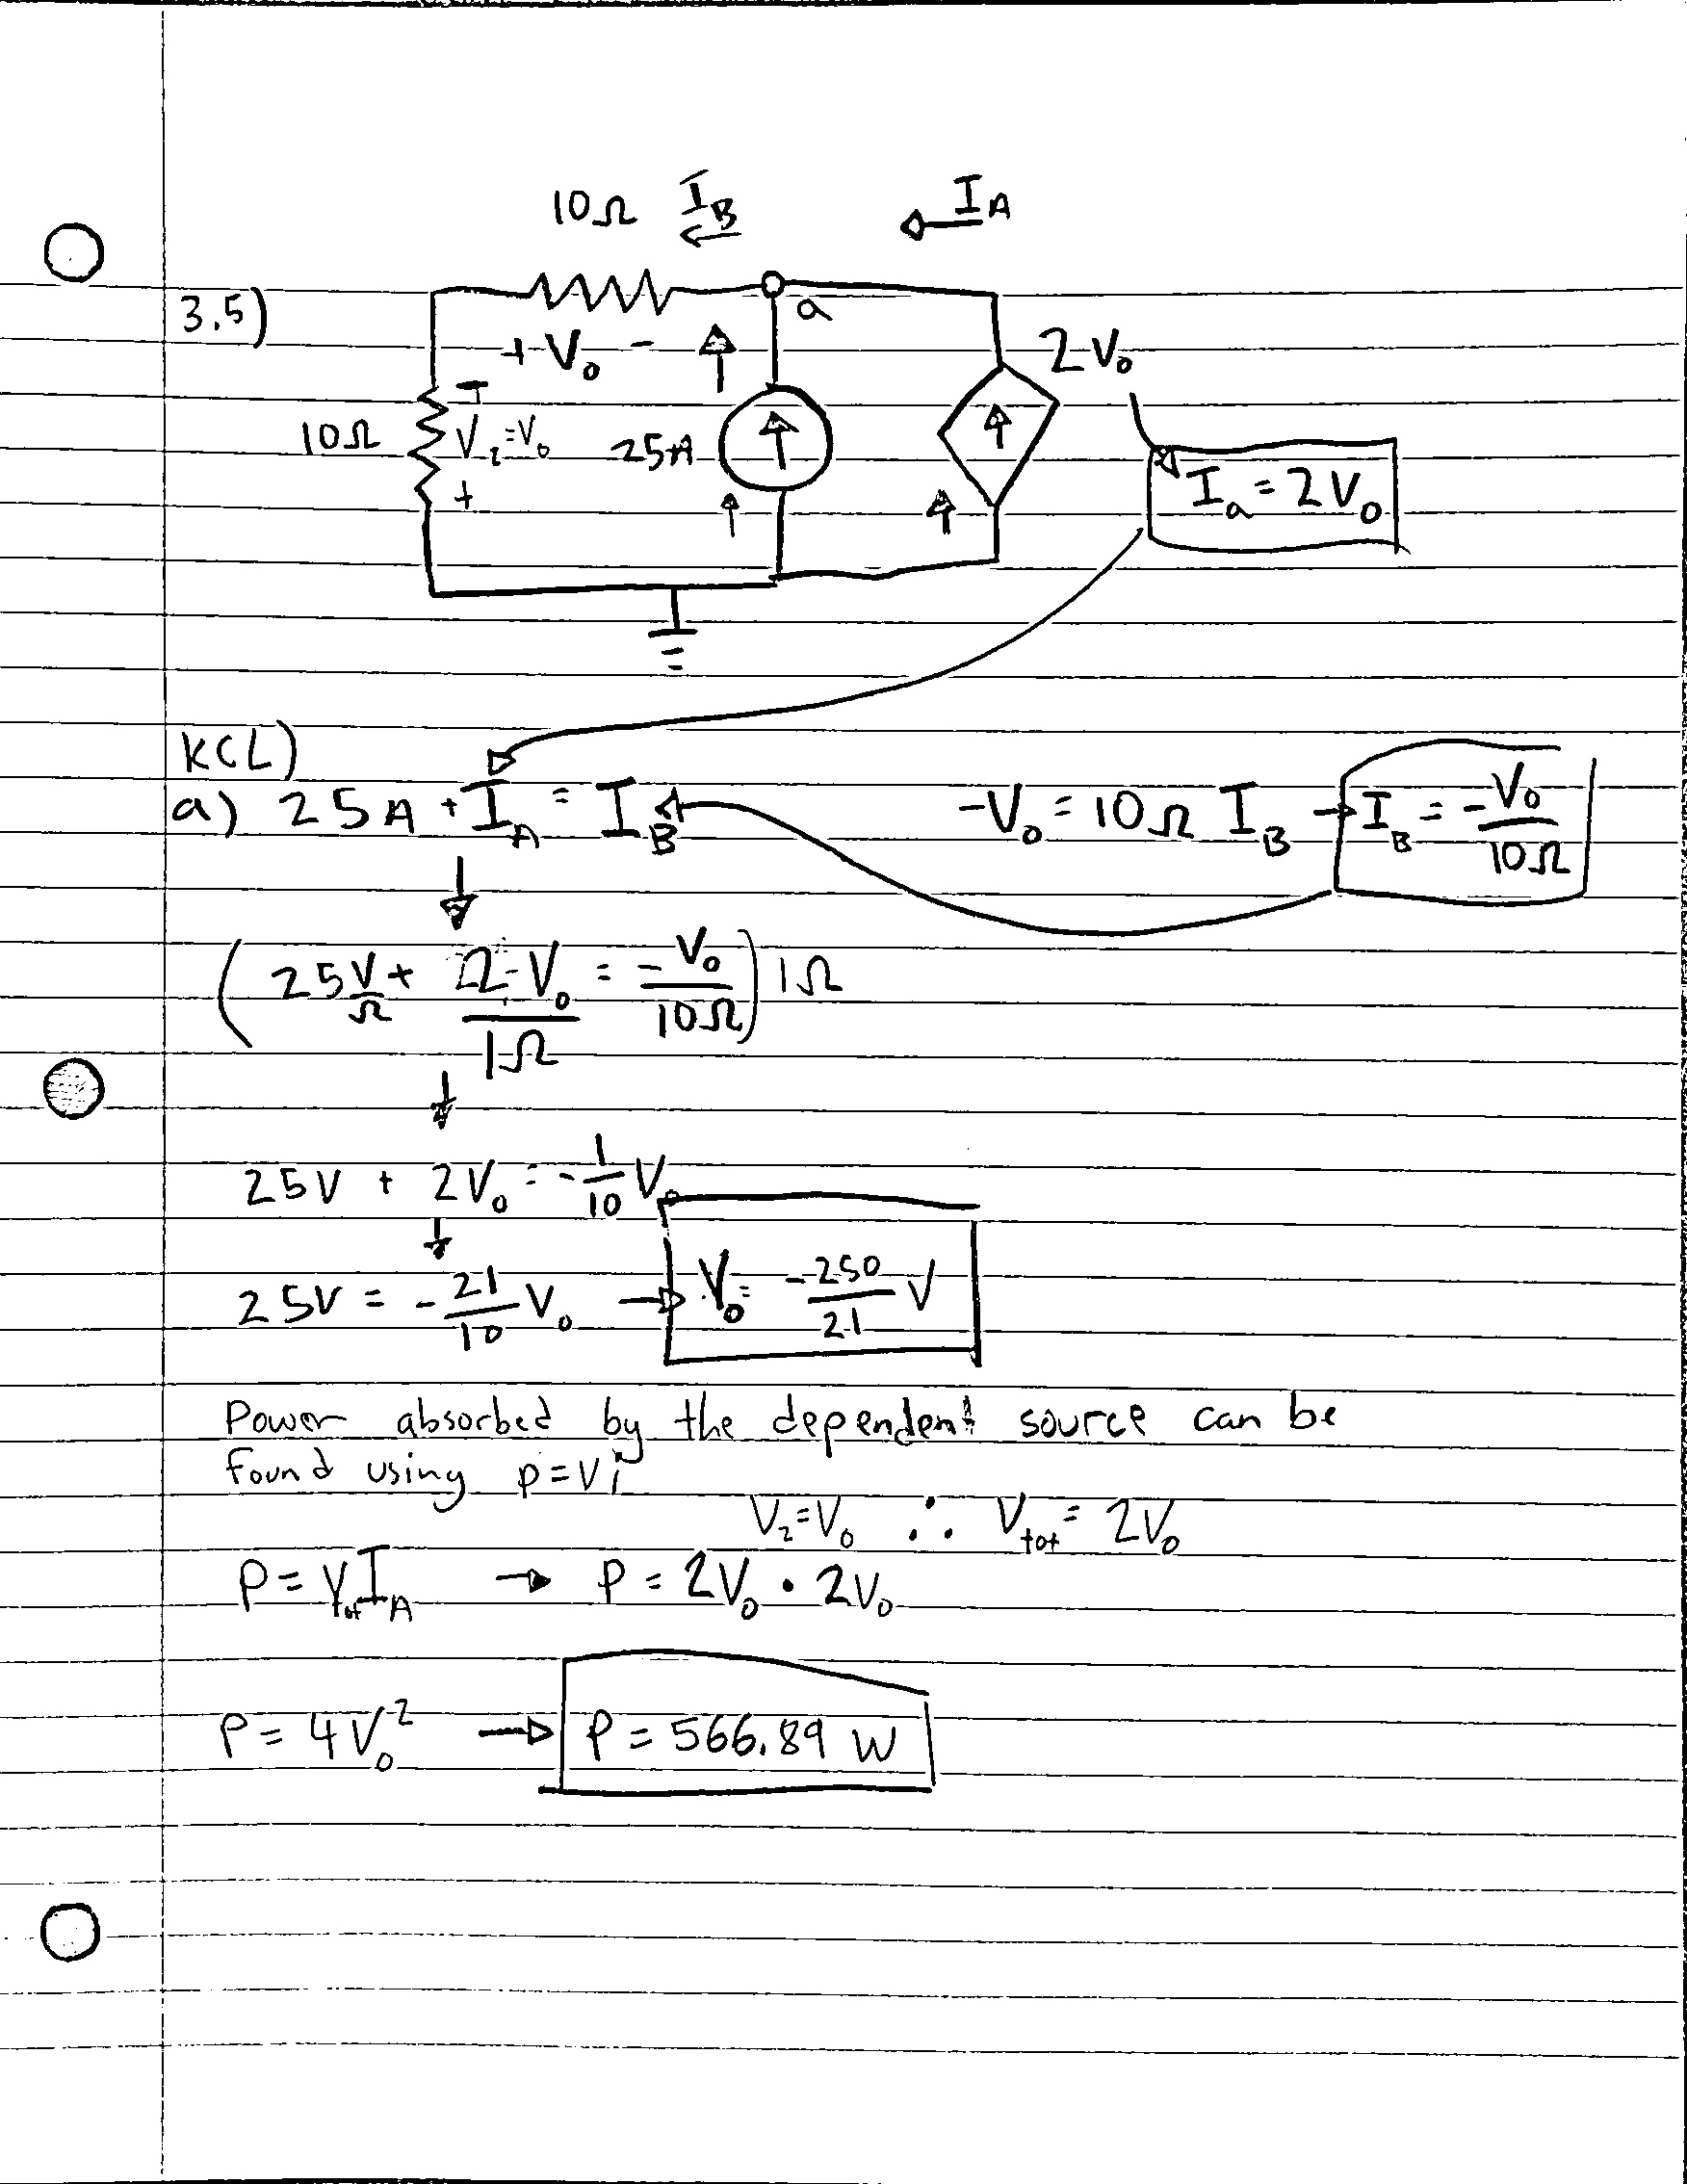 10Ω I_B I_A
3.5)
a
+ V₀ - 2V₀
10Ω - V₂=V₀ 25A
+
I_a = 2V₀
KCL)
a) 25A + I_A = I_B -V₀ = 10Ω I_B → I_B = -V₀/10Ω
(25 V/Ω + 2·V₀/1Ω = -V₀/10Ω) 1Ω
25V + 2V₀ = -1/10 V₀
25V = -21/10 V₀ → V₀ = -250/21 V
Power absorbed by the dependent source can be
found using p=vi
V₂=V₀ ∴ V_tot = 2V₀
P = V_tot I_A → P = 2V₀ · 2V₀
P = 4V₀² → P = 566.89 W